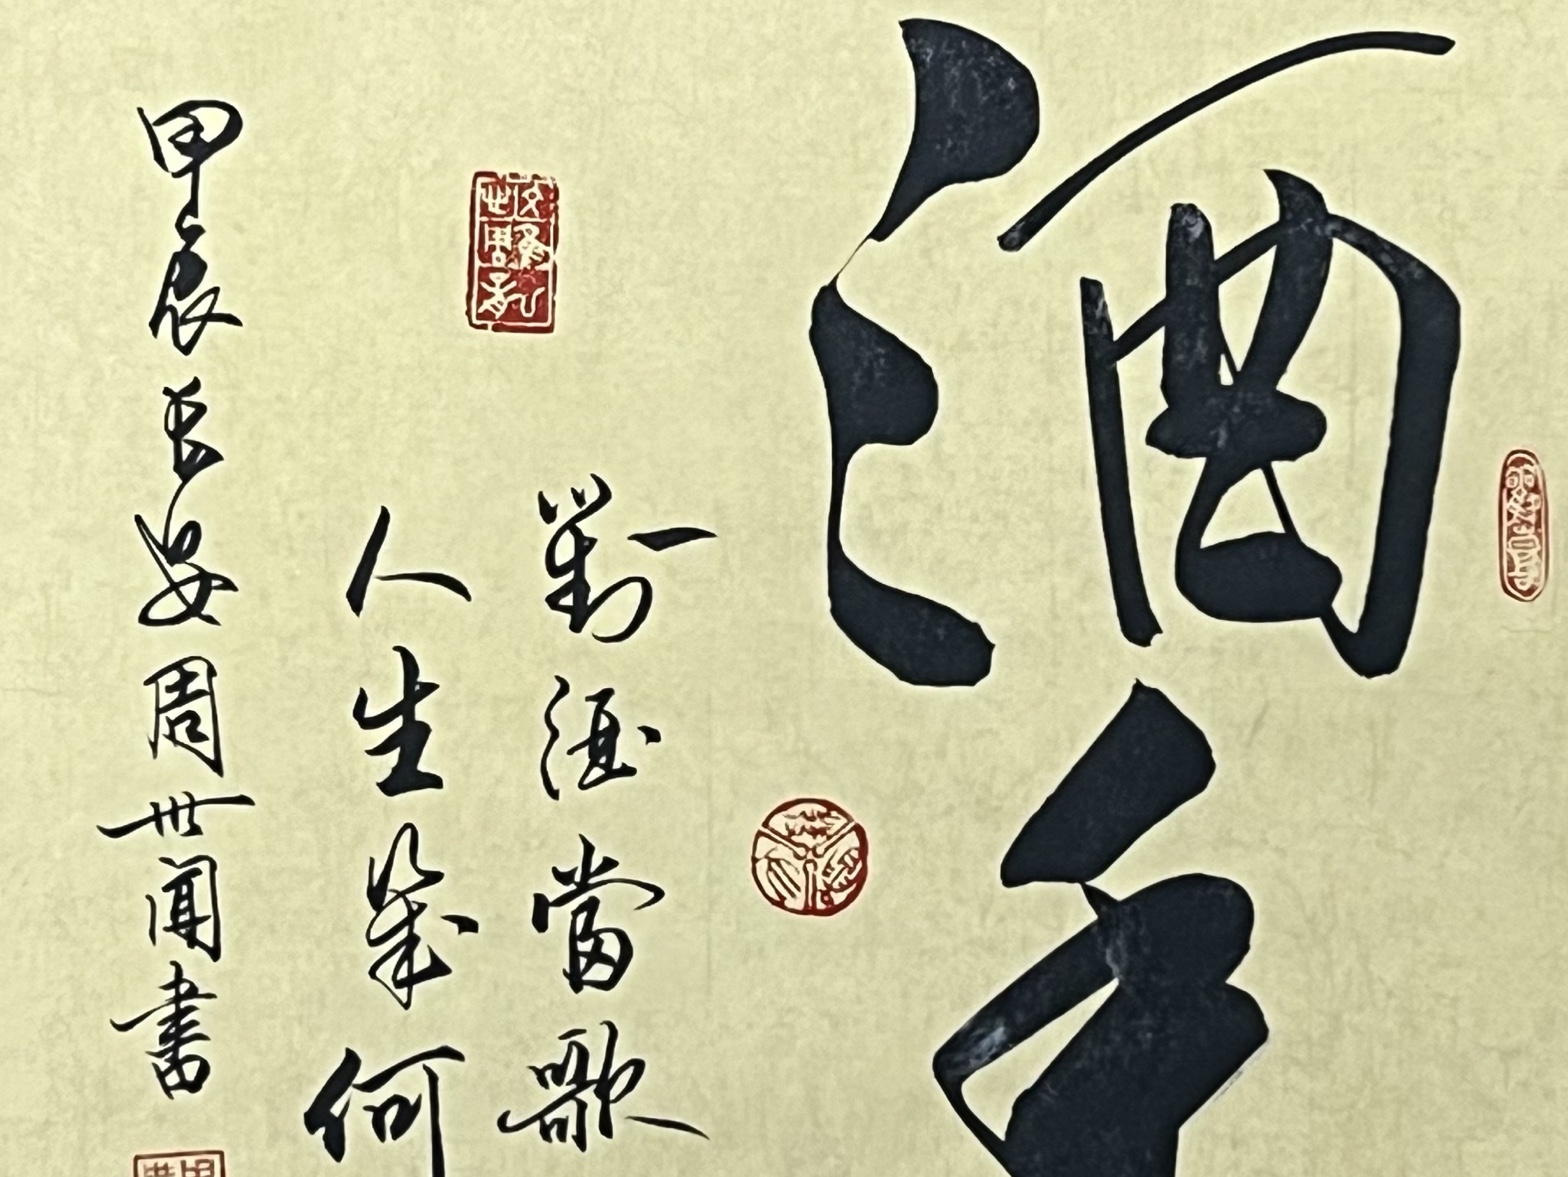 酒
對酒當歌
人生幾何
甲辰長安周世聞書